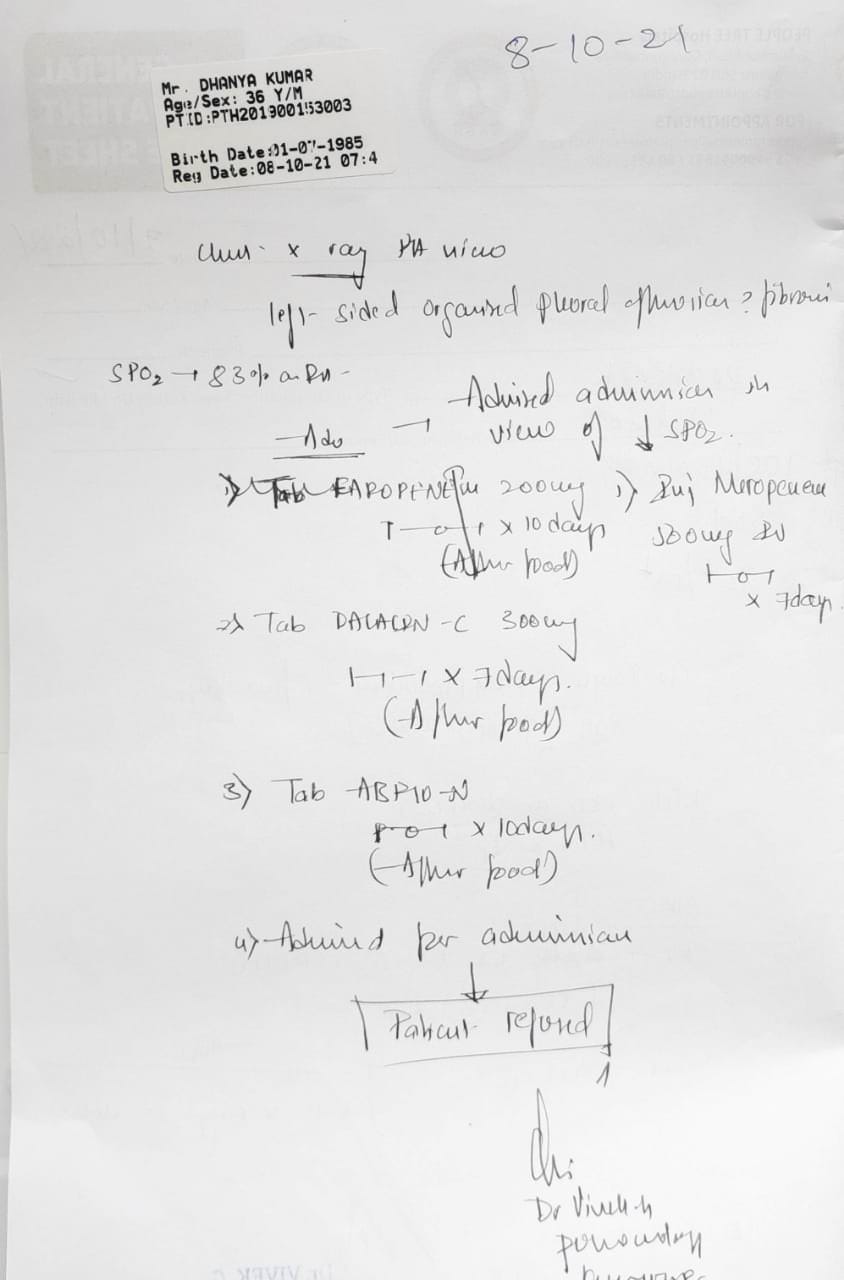 8-10-21
Mr. DHANYA KUMAR
Age/Sex: 36 Y/M
PT.ID:PTH201900153003
Birth Date:01-07-1985
Reg Date:08-10-21 07:4
Chest x ray PA view
left sided organised pleural effusion ? fibrosis
SPO2 → 83% on RA
Adv → Advised admission in
view of ↓ SPO2.
1) Tab FAROPENEM 200mg
1-0-1 x 10 days
(After food)
1) Inj Meropenem
500mg IV
1-0-1
x 7days
2) Tab DALACIN-C 300mg
1-1-1 x 7days.
(After food)
3) Tab ABPIO-N
1-0-1 x 10days.
(After food)
4) Advised for admission
↓
Patient refused
Dr